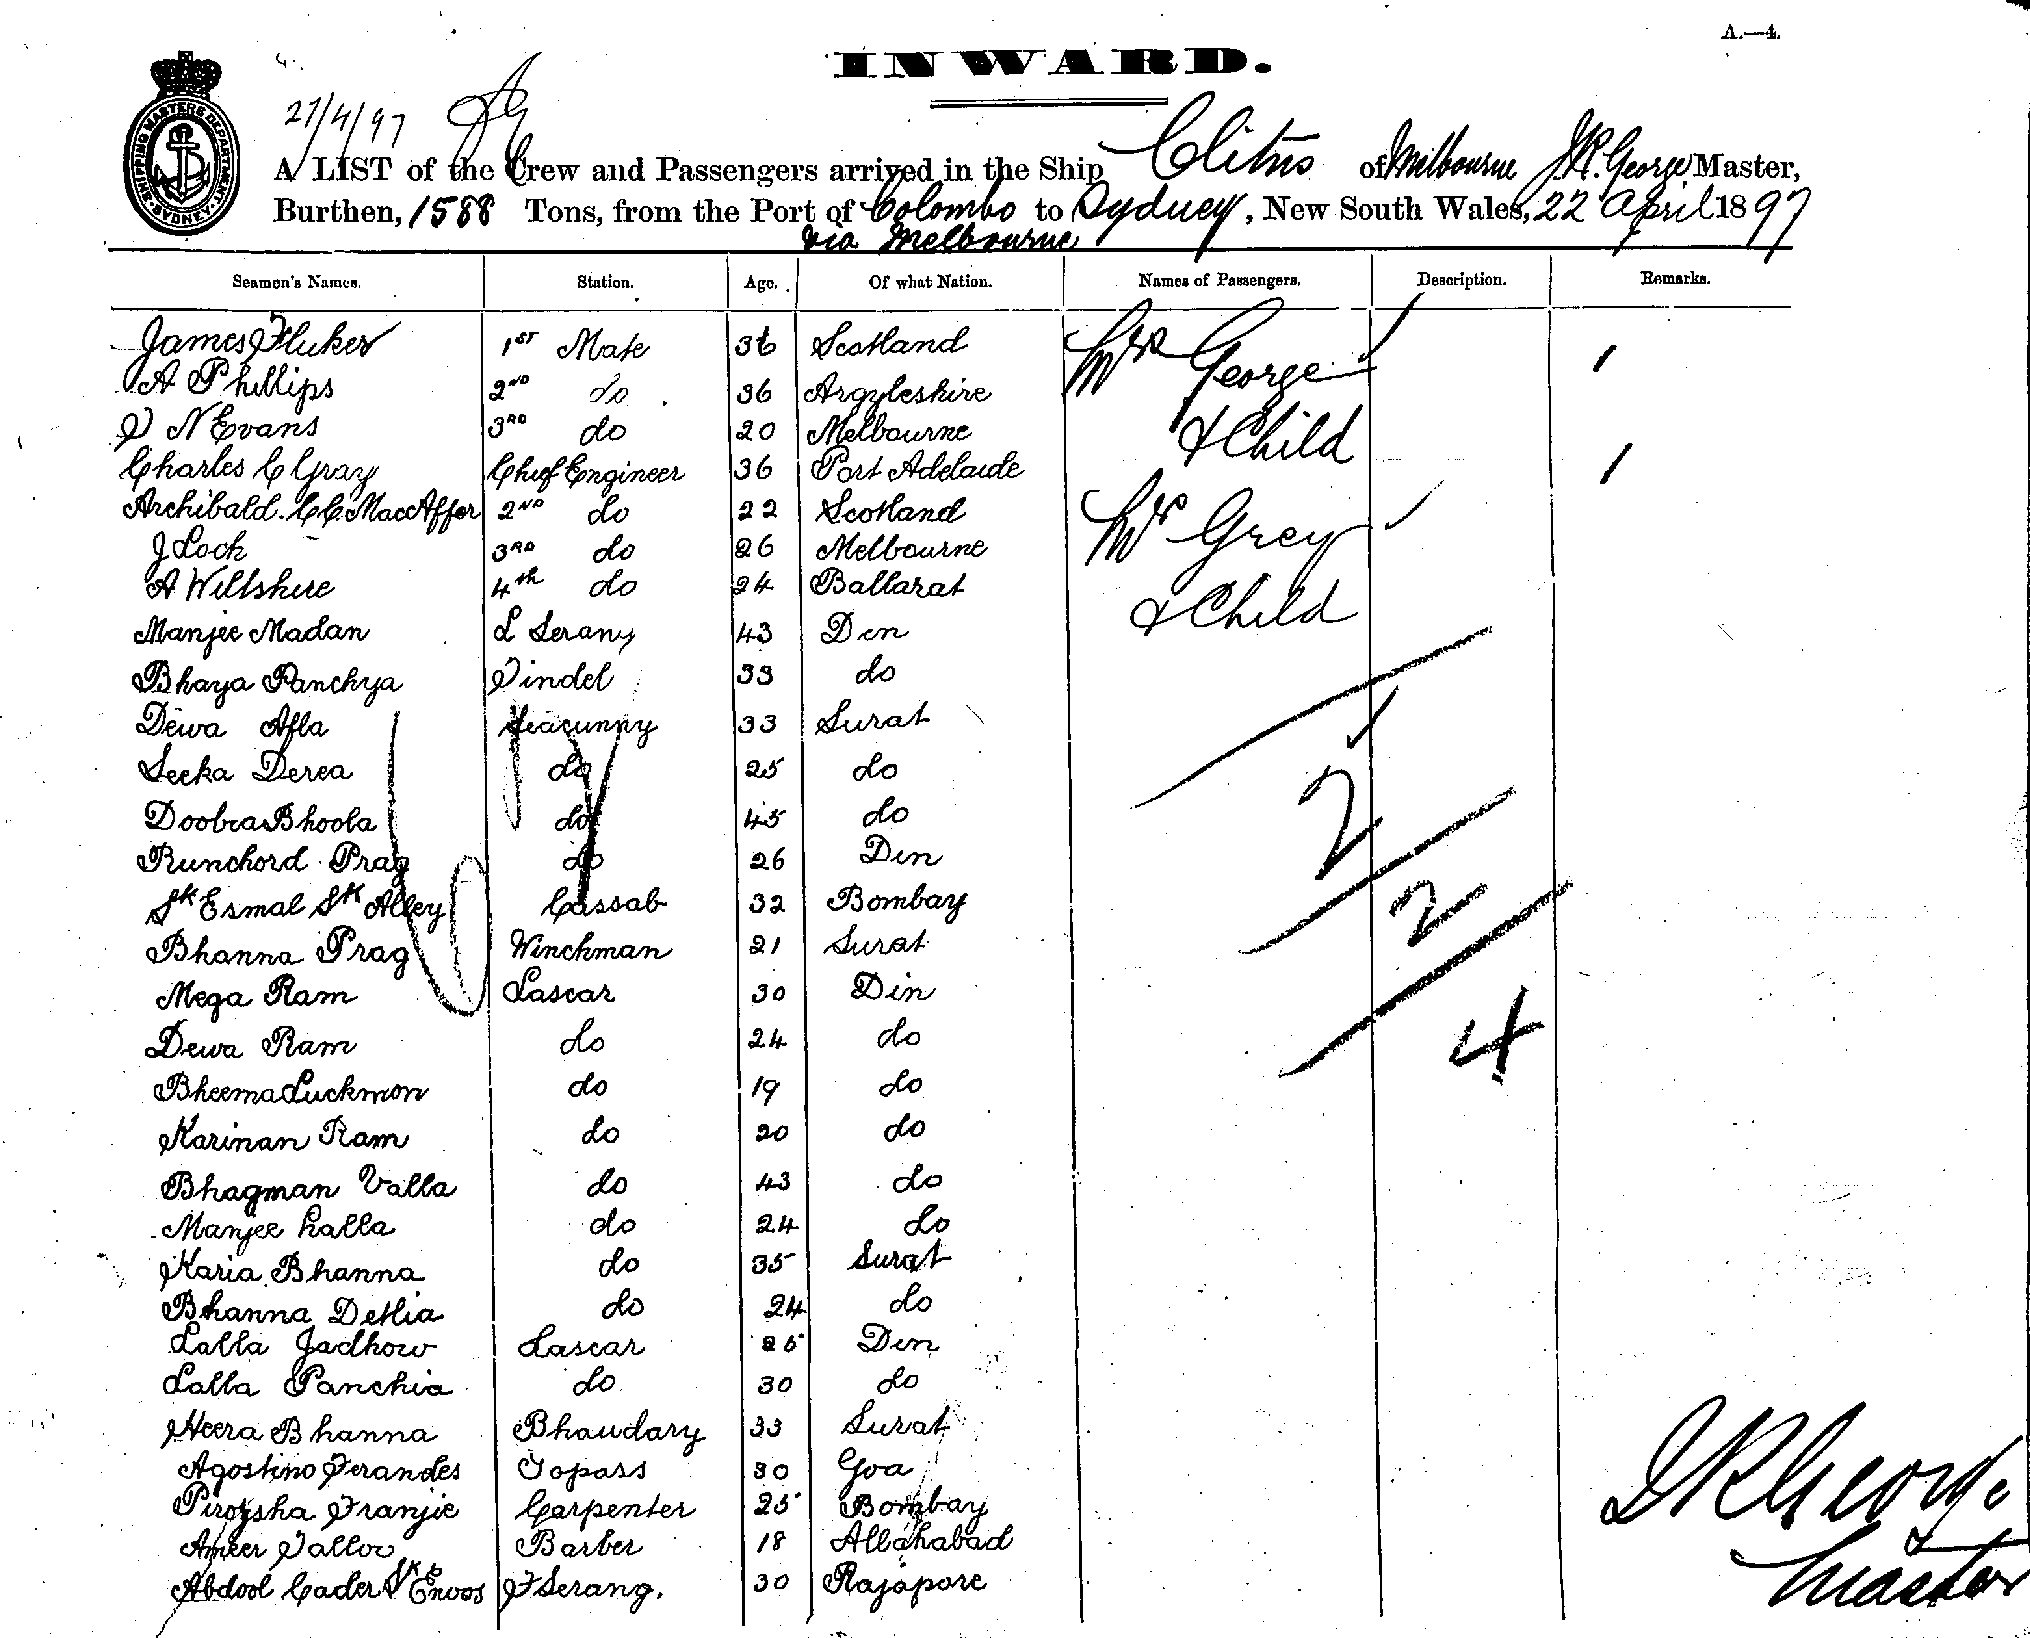 A.—4.
INWARD.
27/4/97
SHIPPING MASTERS DEPARTMENT SYDNEY
A LIST of the Crew and Passengers arrived in the Ship Clitus of Melbourne J.R. George Master,
Burthen, 1588 Tons, from the Port of Colombo to Sydney, New South Wales, 22 April 1897
via Melbourne
Seamen's Names. Station. Age. Of what Nation. Names of Passengers. Description. Remarks.
James Fluker 1st Mate 36 Scotland Mrs George
A Phillips 2nd do 36 Argyleshire
J N Evans 3rd do 20 Melbourne & Child
Charles C Gray Chief Engineer 36 Port Adelaide
Archibald. C C. MacAffer 2nd do 22 Scotland Mrs Grey
J Lock 3rd do 26 Melbourne
A Wiltshire 4th do 24 Ballarat & Child
Manjee Madan D Serang 43 Din
Bhaya Panchya Tindel 33 do
Dewa Afla Seacunny 33 Surat
Seeka Derea do 25 do 2
Doobra Bhoola do 45 do
Runchord Prag do 26 Din
Sk Esmal Sk Alley Cassab 32 Bombay 2
Bhanna Prag Winchman 21 Surat
Mega Ram Lascar 30 Din
Dewa Ram do 24 do 4
Bheema Luckmon do 19 do
Karinan Ram do 20 do
Bhagman Valla do 43 do
Manjee Lalla do 24 do
Karia Bhanna do 35 Surat
Bhanna Dethia do 24 do
Lalla Jadhow Lascar 25 Din
Lalla Panchia do 30 do
Heera Bhanna Bhaudary 33 Surat
Agostino Ferandes Topass 30 Goa
Piroysha Franjie Carpenter 25 Bombay
Ameer Valloo Barber 18 Allahabad
Abdool Cader Sk Enoos F Serang. 30 Rajapore
J R George
Master